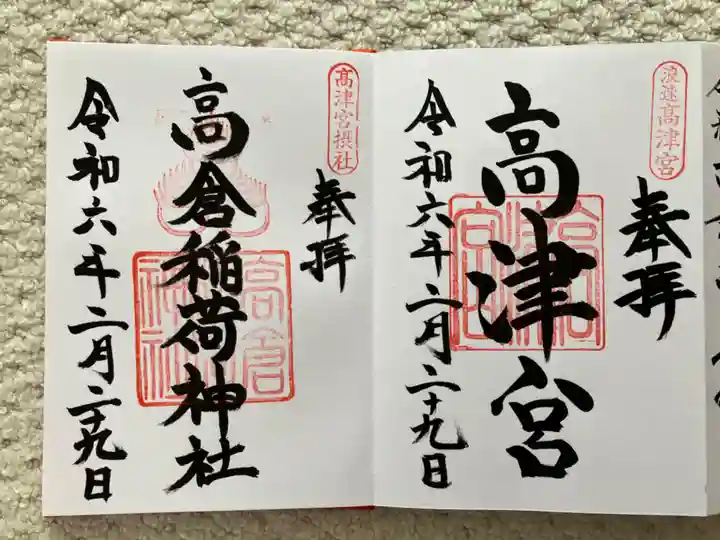 浪速高津宮
奉拝
高津宮
令和六年二月二十九日
高津宮摂社
奉拝
高倉稲荷神社
高倉
神社
令和六年二月二十九日